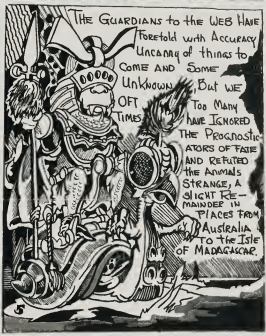 The Guardians to the Web Have
Foretold with Accuracy
Uncanny of things to
Come and Some
Unknown, But we
Oft Too Many
Times have Ignored
the Prognostic-
ators of Fate
and Refuted
the Animals
Strange, a
slight Re-
mainder in
Places From
Australia
to the Isle
of Madagascar.
5